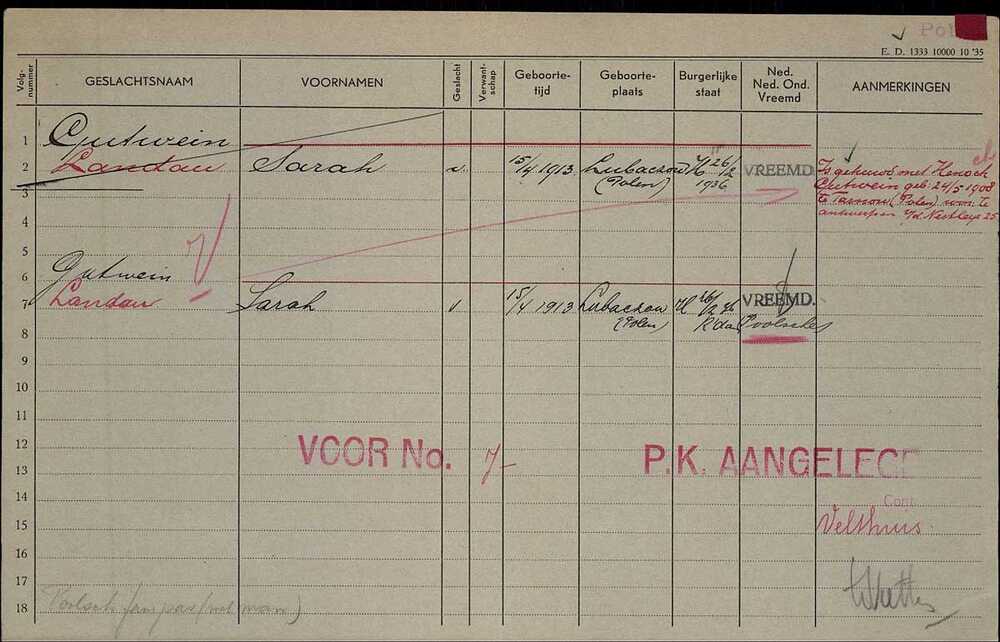 Pol
E. D. 1333 10000 10 '35
Volg-nummer GESLACHTSNAAM VOORNAMEN Geslacht Verwant-schap Geboorte-tijd Geboorte-plaats Burgerlijke staat Ned. Ned. Ond. Vreemd AANMERKINGEN
1 Gutwein
2 Landau Sarah v. 15/4 1913 Lubaczow 26/2 VREEMD. Is gehuwd met Henoch
(Polen) 1936 Gutwein geb. 24/5 1908
3 te Tarnow (Polen) won. te
antwerpen
4
5
Gutwein
6
7 Landau Sarah v 15/4 1913 Lubaczow H 26/2 36 VREEMD.
(Polen) R'dam Poolsche
8
9
10
11
12 VOOR No. 7 P.K. AANGELEG
13
14 Cont.
15 Velthuis
16
17
18 Poolsch